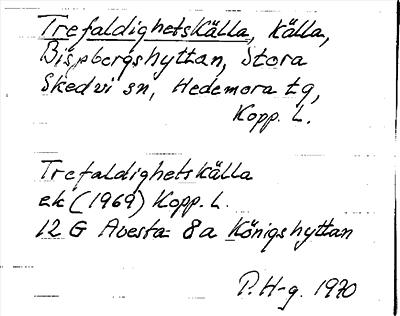 Trefaldighetskälla, källa,
Bispbergshyttan, Stora
Skedvi sn, Hedemora tg,
Kopp. L.
Trefaldighetskälla
ek (1969) Kopp. L.
12 G Avesta 8a Königshyttan
P. H-g. 1970